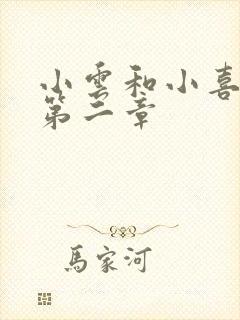 小雲和小喜
第二章
馬家河